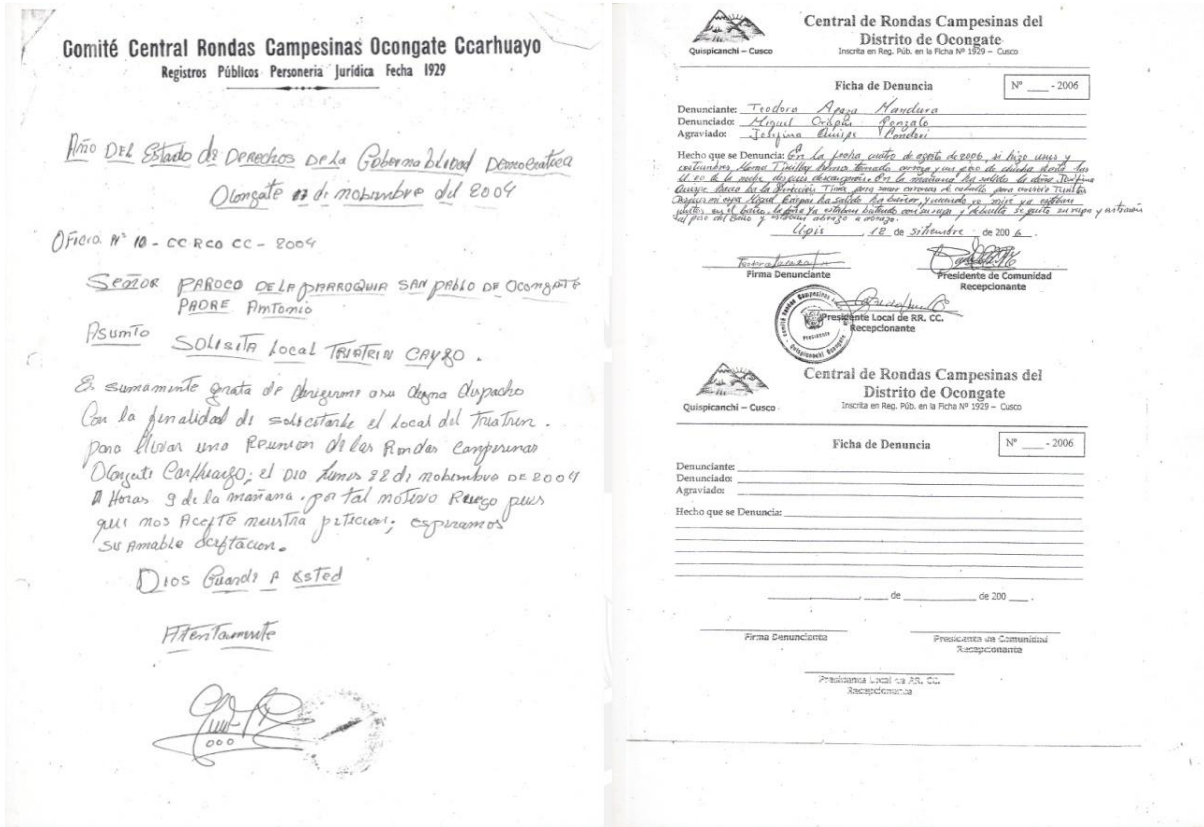 Comité Central Rondas Campesinas Ocongate Ccarhuayo
Registros Públicos Personeria Jurídica Fecha 1929
Año DEL Estado de DERECHOS DE LA Gobernabilidad DEMOCRATICA
Ocongate 07 di nobiembre del 2004
OFICIO Nº 10 - CC RCO CC - 2004
SEÑOR PAROCO DE LA PARROQUIA SAN PABLO DE OCONGATE
PADRE Antonio
Asumto SOLISITA Local TRIATRIN CAYGO .
Es sumamente grata de dirigirme a su digna dispacho
Con la finalidad di solicitarle el local del Triatrin.
para llivar una Reunion di las Rondas Campesinas
Ocongate Carhuayo; el DIA Lunes 22 di nobiembre DE 2004
A Horas 9 de la mañana. por tal motivo Ruego pues
qui nos Acepte nuestra peticion; espiramos
su Amable aceptacion.
Dios Guardi A Usted
Atentamente
Quispicanchi – Cusco
Central de Rondas Campesinas del
Distrito de Ocongate
Inscrita en Reg. Púb. en la Ficha Nº 1929 – Cusco
Ficha de Denuncia
Nº ____ - 2006
Denunciante: Teodora Apaza Mandura
Denunciado: Miguel Crispin Gonzalo
Agraviado: Josifina Quispe Condori
Hecho que se Denuncia: En la fecha cuatro de agosto de 2006, si hizo unos y
costumbres hemos tomado cerveza y un poco de chicha hasta las
11.00 de la noche, despues descansaron. En la mañana ha salido la niña Josifina
para sacar de caballo, para
Miguel ha salido ha buscar, y cuando yo mire ya estaban
juntos en el baño, la niña ya
piso del Baño y estaban abrazo a abrazo.
Upis, 12 de sitiembre de 2006.
Firma Denunciante
Presidente de Comunidad
Recepcionante
Presidente Local de RR. CC.
Recepcionante
Quispicanchi – Cusco
Central de Rondas Campesinas del
Distrito de Ocongate
Inscrita en Reg. Púb. en la Ficha Nº 1929 – Cusco
Ficha de Denuncia
Nº ____ - 2006
Denunciante:
Denunciado:
Agraviado:
Hecho que se Denuncia:
____________, ____ de __________ de 200 ___ .
Firma Denunciante
Presidente de Comunidad
Recepcionante
Presidente Local de RR. CC.
Recepcionante